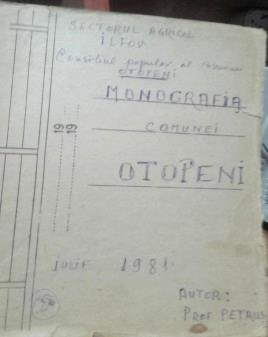 SECTORUL AGRICOL
ILFOV
Consiliul popular al comunei
OTOPENI
MONOGRAFIA
COMUNEI
OTOPENI
19
19
iulie 1981
AUTOR:
PROF PETRUS